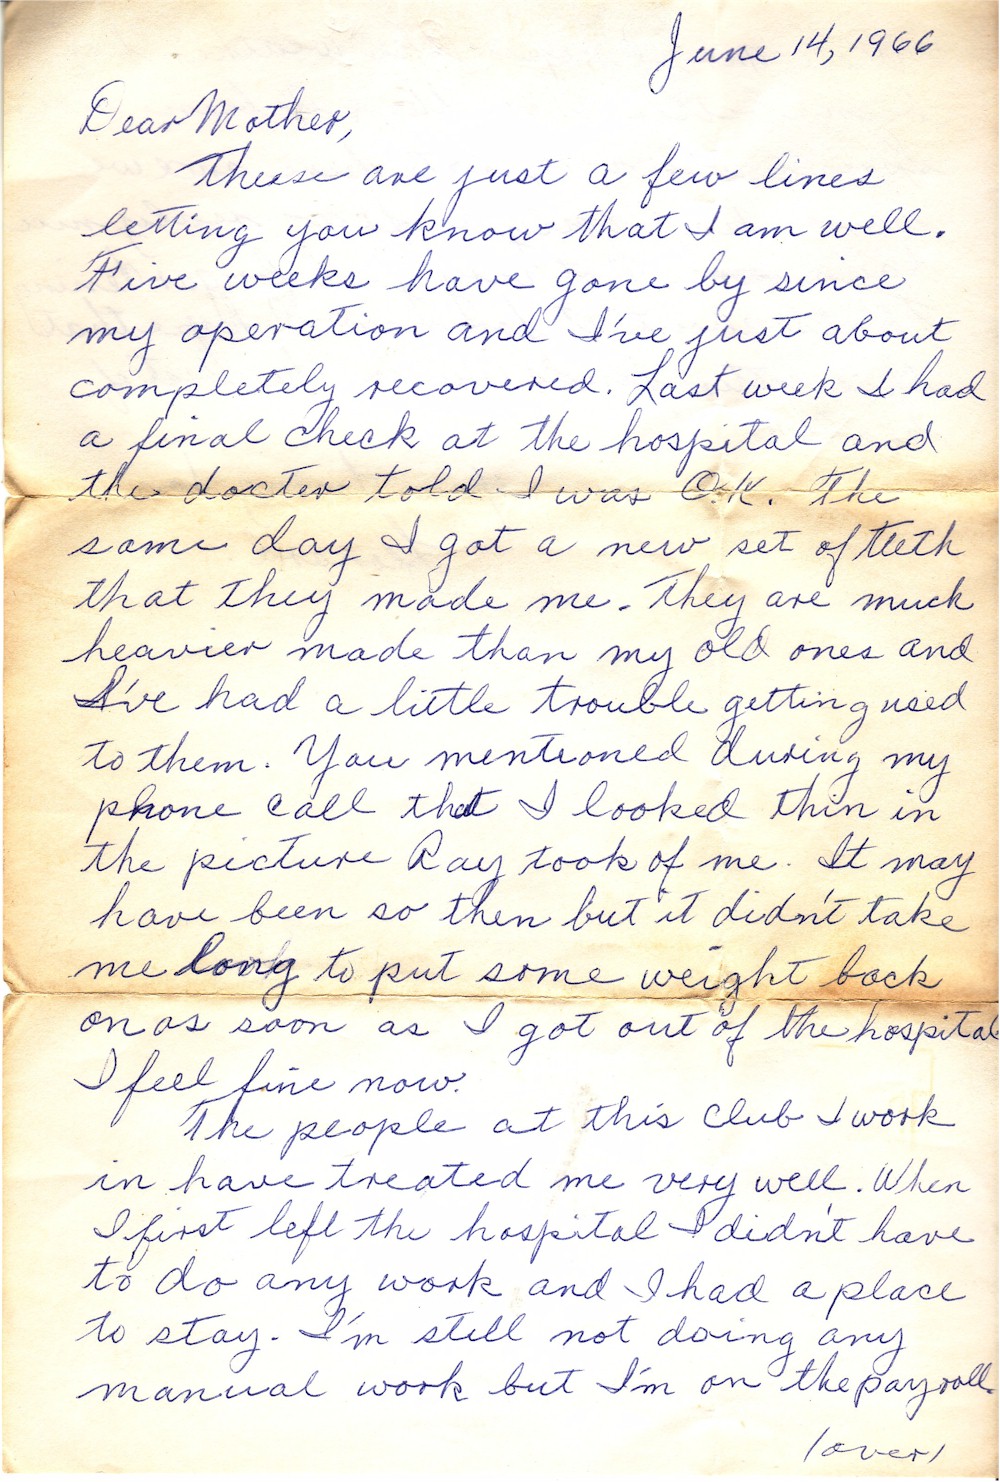 June 14, 1966
Dear Mother,
These are just a few lines
letting you know that I am well.
Five weeks have gone by since
my operation and I've just about
completely recovered. Last week I had
a final check at the hospital and
the docter told I was O.K. The
same day I got a new set of teeth
that they made me. They are much
heavier made than my old ones and
I've had a little trouble getting used
to them. You mentioned during my
phone call that I looked thin in
the picture Ray took of me. It may
have been so then but it didn't take
me long to put some weight back
on as soon as I got out of the hospital
I feel fine now.
The people at this club I work
in have treated me very well. When
I first left the hospital I didn't have
to do any work and I had a place
to stay. I'm still not doing any
manual work but I'm on the payroll.
/over/